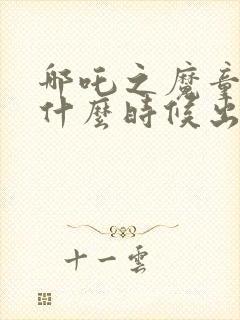 哪吒之魔童
什麼時候出
十一雲